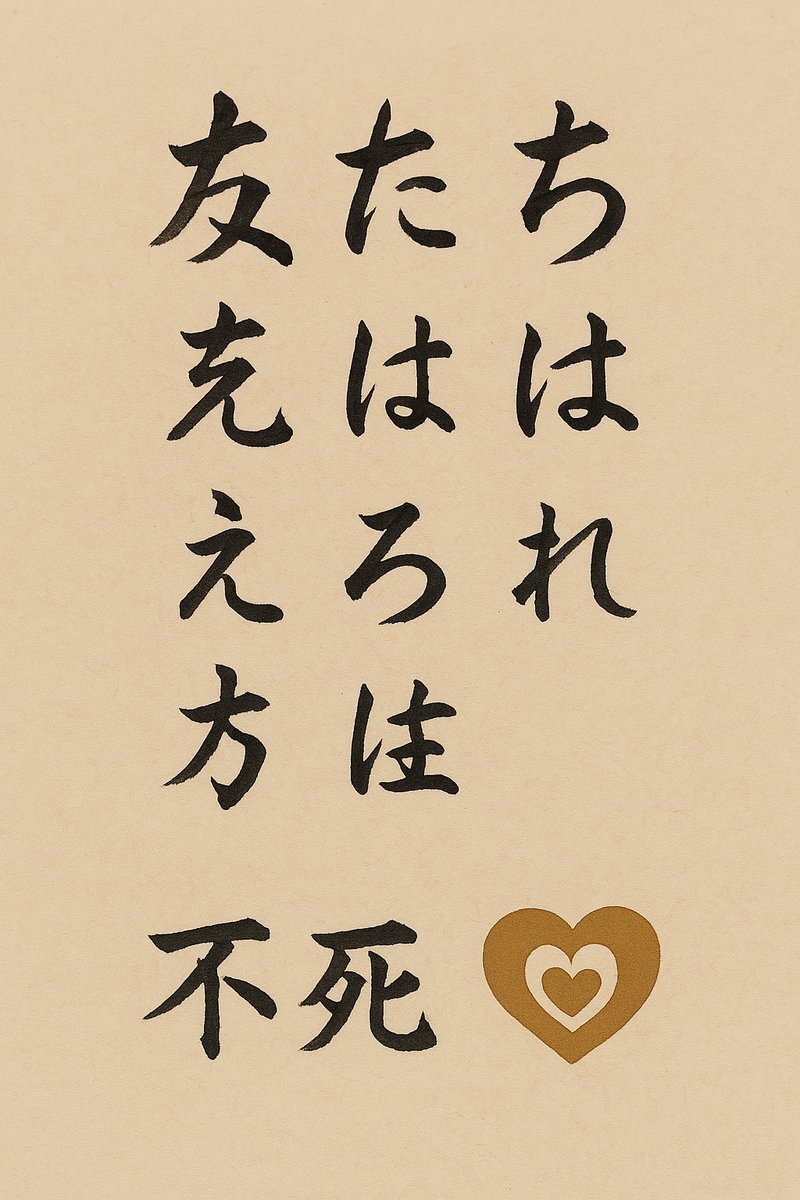 友たち
はは
えろれ
方
不死